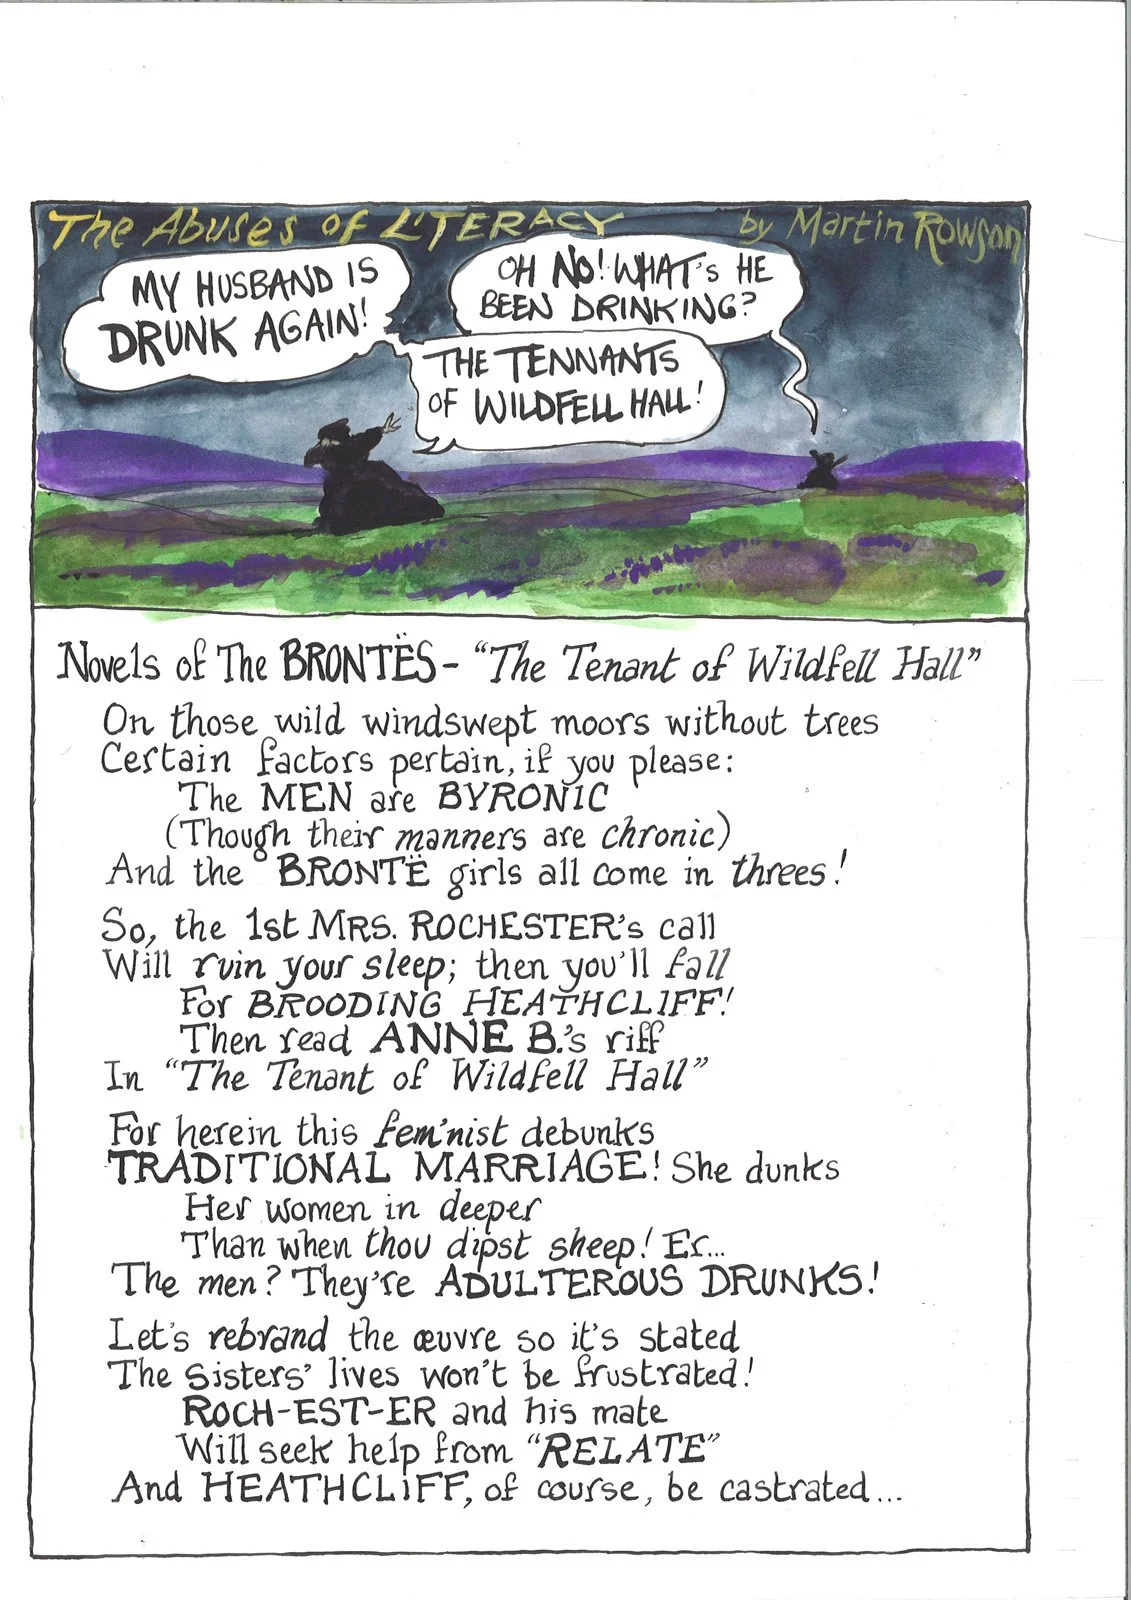 The Abuses of LITERACY by Martin Rowson
MY HUSBAND IS
DRUNK AGAIN!
OH NO! WHAT's HE
BEEN DRINKING?
THE TENNANTS
OF WILDFELL HALL!
Novels of The BRONTËS - "The Tenant of Wildfell Hall"
On those wild windswept moors without trees
Certain factors pertain, if you please:
The MEN are BYRONIC
(Though their manners are chronic)
And the BRONTË girls all come in threes!
So, the 1st MRS. ROCHESTER's call
Will ruin your sleep; then you'll fall
For BROODING HEATHCLIFF!
Then read ANNE B.'s riff
In "The Tenant of Wildfell Hall"
For herein this fem'nist debunks
TRADITIONAL MARRIAGE! She dunks
Her women in deeper
Than when thou dipst sheep! Er...
The men? They're ADULTEROUS DRUNKS!
Let's rebrand the œuvre so it's stated
The Sisters' lives won't be frustrated!
ROCH-EST-ER and his mate
Will seek help from "RELATE"
And HEATHCLIFF, of course, be castrated...